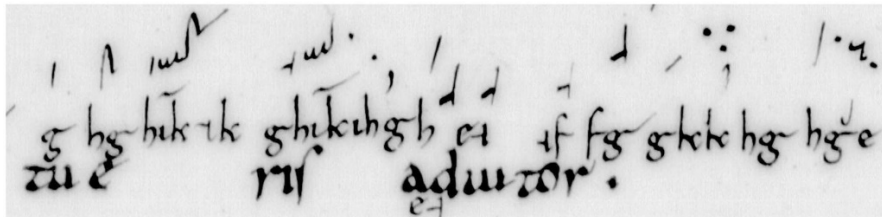 g hg hik ik ghikihg h e⊣ ⊣f fg gkk hg hg e
tu e ris adiutor.
e⊣